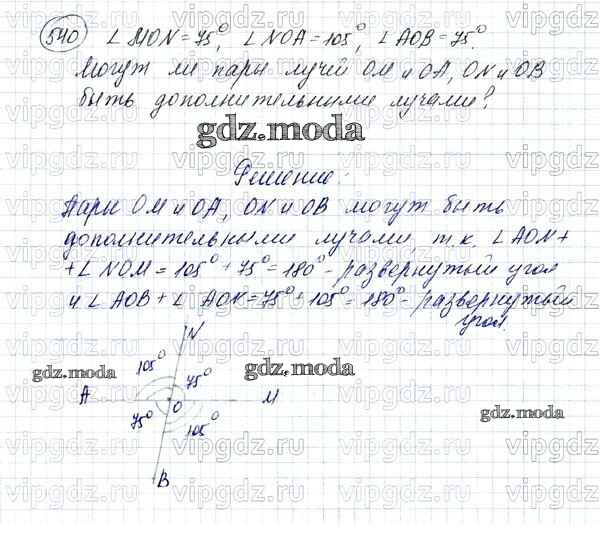 540 ∠ MON = 75°, ∠ NOA = 105°, ∠ AOB = 75°.
Могут ли пары лучей OM и OA, ON и OB
быть дополнительными лучами?
gdz.moda
Решение:
Пары OM и OA, ON и OB могут быть
дополнительными лучами, т.к. ∠ AON +
+ ∠ NOM = 105° + 75° = 180° - развернутый угол
и ∠ AOB + ∠ AON = 75° + 105° = 180° - развернутый
угол.
N
105° 75°
gdz.moda gdz.moda
A O M
75° 105°
gdz.moda
B
vipgdz.ru